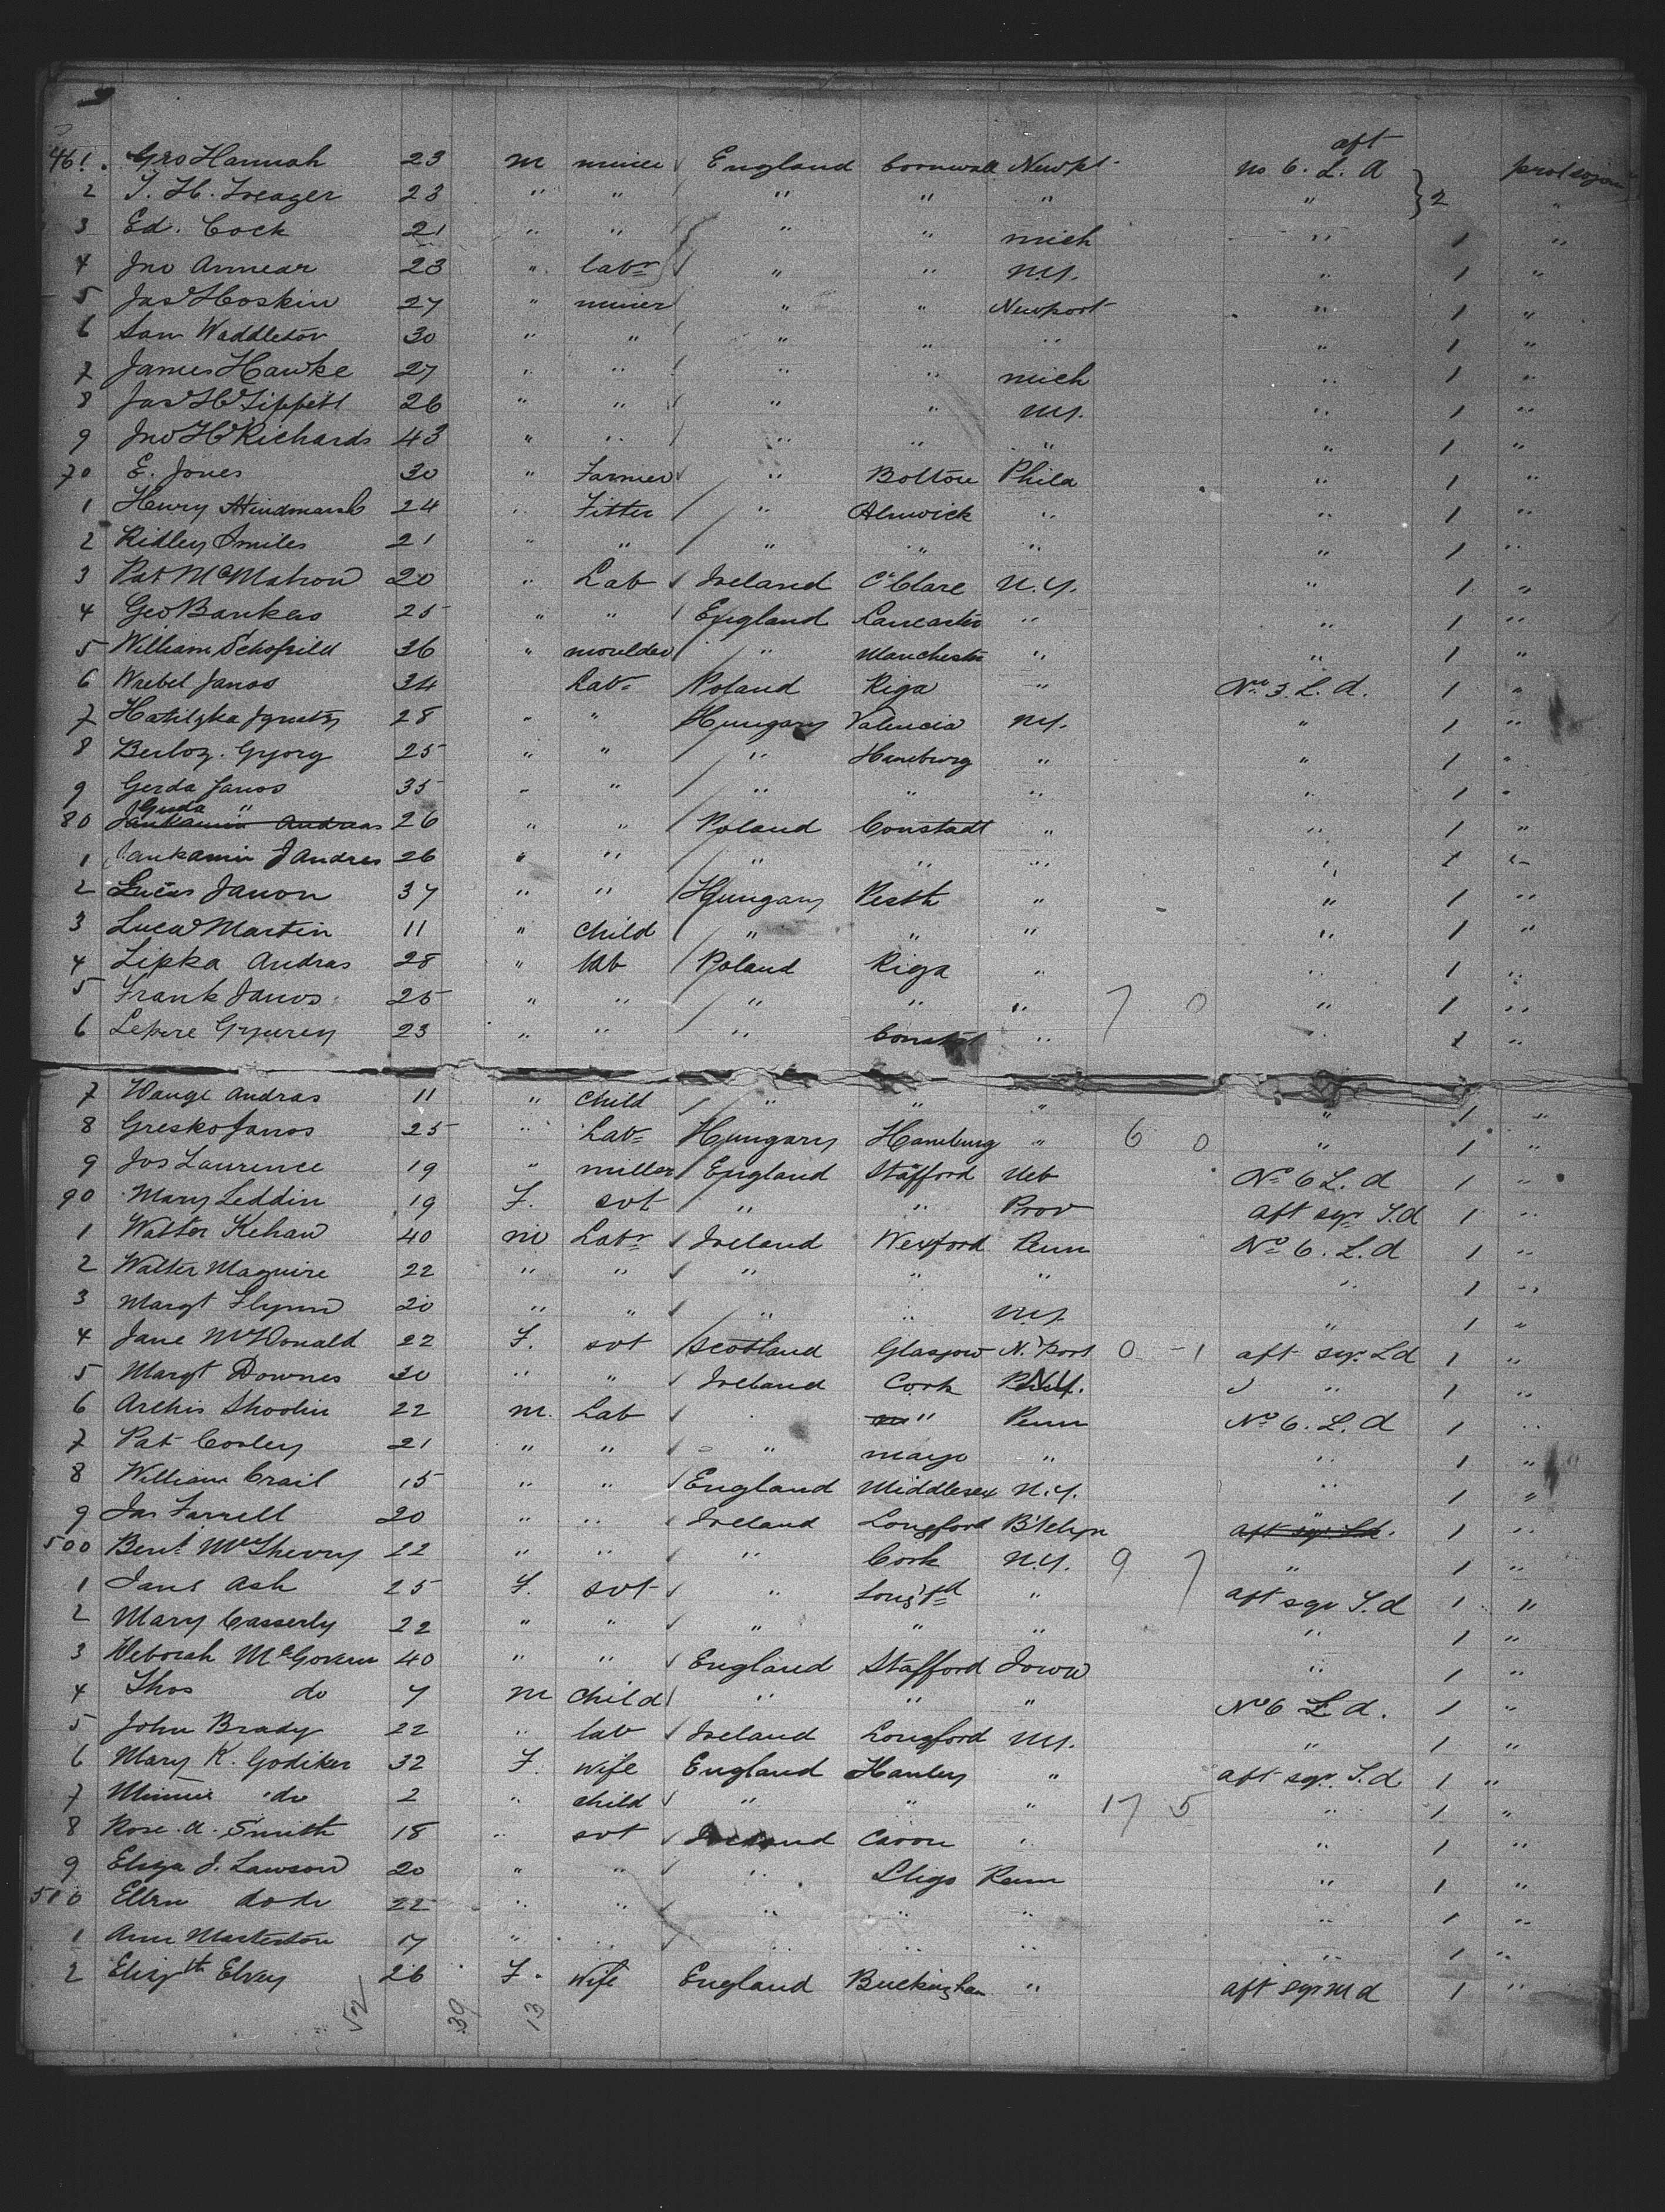 461. Geo Hannah 23 m miner England Cornwall Newpt no 6. L. d aft prot sojourn
2 T. H. Treager 23 " " " " " " } 2 "
3 Ed. Cock 21 " " " " mich " 1 "
4 Jno Annear 23 " labr " " N.Y. " 1 "
5 Jas Hoskin 27 " miner " " Newport " 1 "
6 Sam Waddleton 30 " " " " " " 1 "
7 James Hawke 27 " " " " mich " 1 "
8 Jas H Tippett 26 " " " " N.Y. " 1 "
9 Jno H Richards 43 " " " " " " 1 "
70 E. Jones 30 " Farmer " Bolton Phila " 1 "
1 Henry Hindmarsh 24 " Fitter " Alnwick " " 1 "
2 Ridley Smiles 21 " " " " " " 1 "
3 Pat McMahon 20 " Lab Ireland Co Clare N.Y. " 1 "
4 Geo Bankes 25 " " England Lancaster " " 1 "
5 William Schofield 36 " moulder " Manchester " " 1 "
6 Wrebel Janos 34 Labr Poland Riga " No 3. L. d. 1 "
7 28 " " Hungary Valencia N.Y. " 1 "
8 Berloz. Gyorg 25 " " " Hamburg " " 1 "
9 Gerda Janos 35 " " " " " " 1 "
80 Gerda " Jankamin Andras 26 " " Poland Constadt " " 1 "
1 Jankamin J Andres 26 " " " " " " 1 "
2 Lucas Janon 37 " " Hungary Pesth " " 1 "
3 Lucas Martin 11 " child " " " " 1 "
4 Lipka Andras 28 " lab Poland Riga " " 1 "
5 Frank Janos 25 " " " " " 7 0 " 1 "
6 Lepire 23 " " " " " 1 "
7 Wange Andras 11 " child " " " " 1 "
8 Gresko Janos 25 " Labr Hungary Hamburg " 6 0 " 1 "
9 Jos Laurence 19 " miller England Stafford Neb No 6 L. d 1 "
90 Mary Leddin 19 F. svt " " Prov aft sqr S.d 1 "
1 Walter Kehaw 40 m Labr Ireland Wexford Penn No 6. L. d 1 "
2 Walter Maguire 22 " " " " " " 1 "
3 Margt Flynn 20 " " " " N.Y. " 1 "
4 Jane McDonald 22 F. svt Scotland Glasgow N. Port 0 - 1 aft sqr. S.d 1 "
5 Margt Downes 30 " " Ireland Cork N.Y. " 1 "
6 Archis Shoolin 22 m. Lab " " Penn No 6. L. d 1 "
7 Pat Corley 21 " " " mayo " " 1 "
8 William Crail 15 " " England Middlesex N.Y. " 1 "
9 Jas Farrell 20 " " Ireland Longford B'klyn " aft sqr S.d. 1 "
500 Bent McSherry 22 " " " Cork N.Y. 9 7 " 1 "
1 Jane Ash 25 F. svt " Longfd " aft sqr S.d 1 "
2 Mary Casserly 22 " " " " " " 1 "
3 Deborah McGovern 40 " " England Stafford Iowa " 1 "
4 Thos do 7 m child " " " No 6 L d. 1 "
5 John Brady 22 " lab Ireland Longford N.Y. " 1 "
6 Mary K. Godiker 32 F. wife England Hanley " aft sqr. S.d 1 "
7 Minnie do 2 " child " " " 17 5 " 1 "
8 Rose. A. Smith 18 " svt Ireland Cavon " " 1 "
9 Eliza J. Lawson 20 " " " Sligo Penn " 1 "
510 Ellen do do 22 " " " " " " 1 "
1 Ann Masterton 17 " " " " " " 1 "
2 Elizth Elvey 26 F. Wife England Buckingham " aft sqr m d 1 "
52 39 13